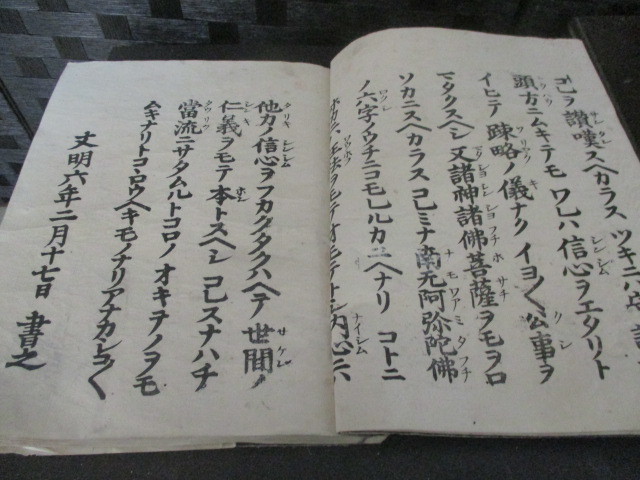 コレヲ讃嘆スヘカラス ツキニハ守
頭方ニムキテモ ワレハ信心ヲエタリト
イヒテ 疎略ノ儀ナク イヨ〱公事ヲ
マタクスヘシ 又諸神諸佛菩薩ヲモヲロ
ソカニスヘカラス コレミナ南无阿弥陀佛
ノ六字ノウチニコモレルカユヘナリ コトニ
ホカニハ王法ヲモテオモテトシ内心ニハ
他力ノ信心ヲフカクタクハヘテ 世間ノ
仁義ヲモテ本トスヘシ コレスナハチ
當流ニサタムルトコロノ オキテノヲモ
ムキナリトコヽロウヘキモノナリアナカシコ〱
文明六年二月十七日 書之